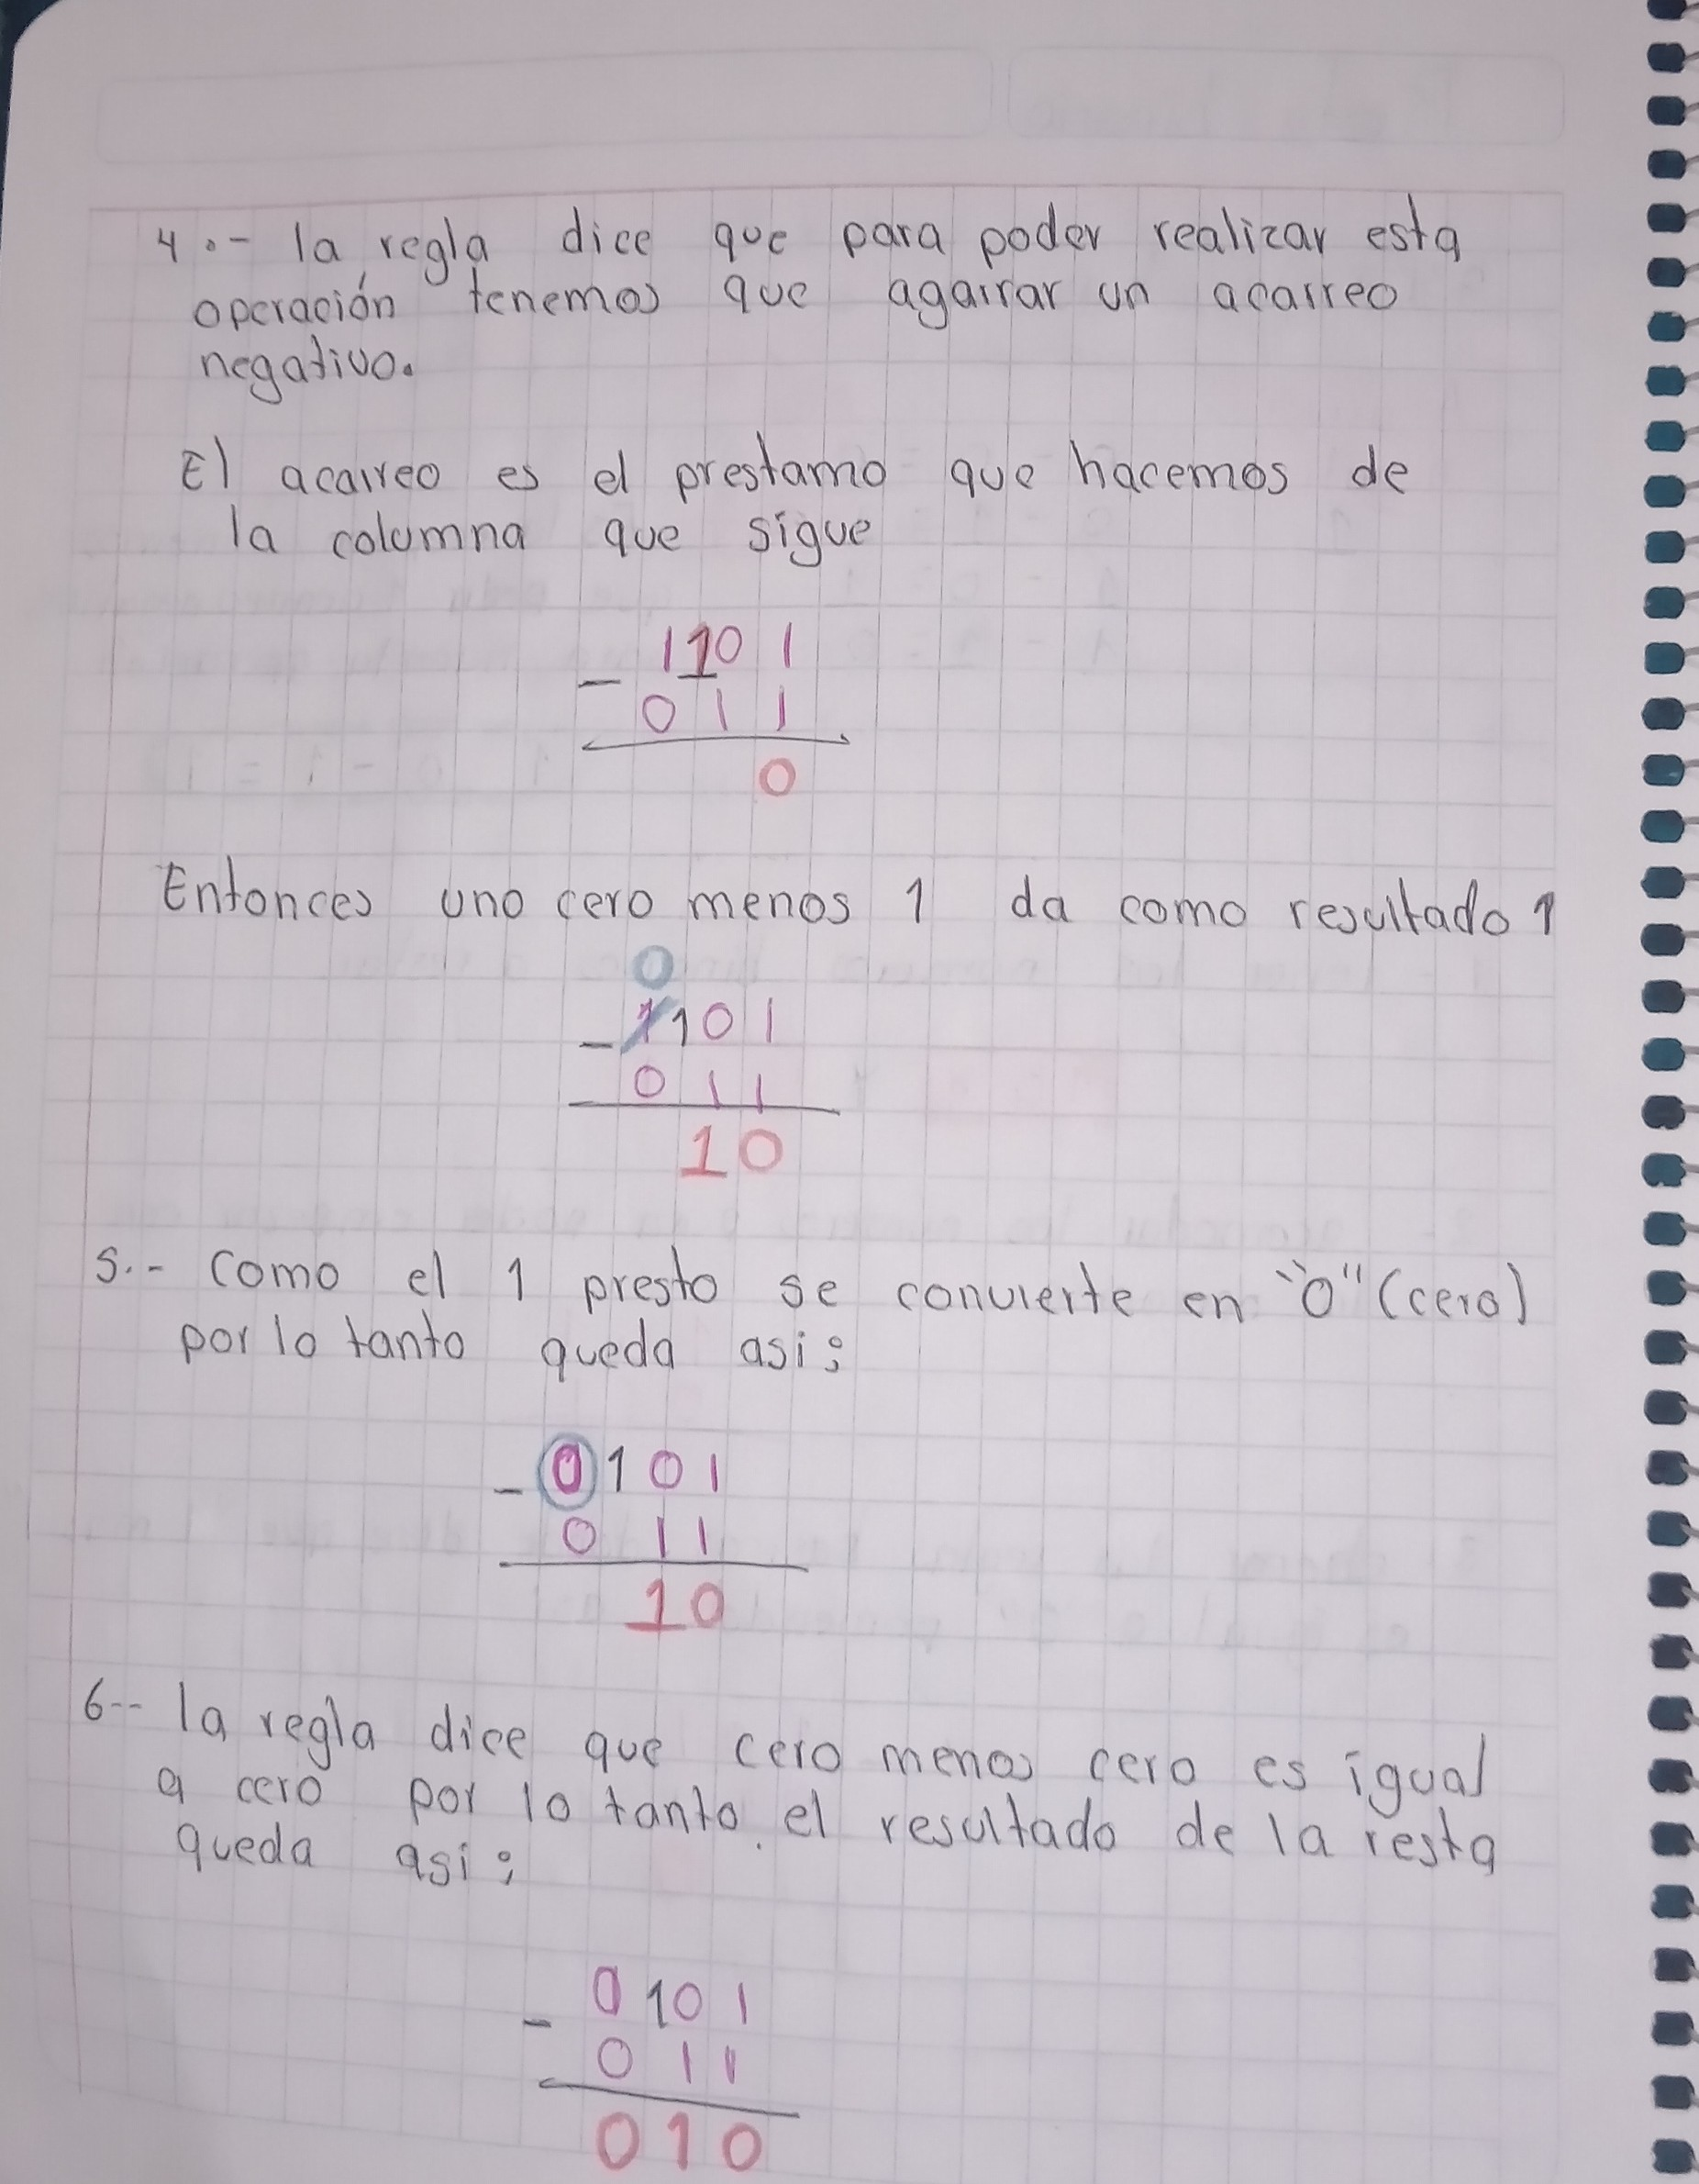 4.- la regla dice que para poder realizar esta
operación tenemos que agarrar un acarreo
negativo.
El acarreo es el prestamo que hacemos de
la columna que sigue
1101
- 011
0
Entonces uno cero menos 1 da como resultado 1
0
- 1101
011
10
5.- Como el 1 presto se convierte en "0" (cero)
por lo tanto queda asi:
- 0101
011
10
6.- la regla dice que cero menos cero es igual
a cero por lo tanto el resultado de la resta
queda asi:
- 0101
011
010